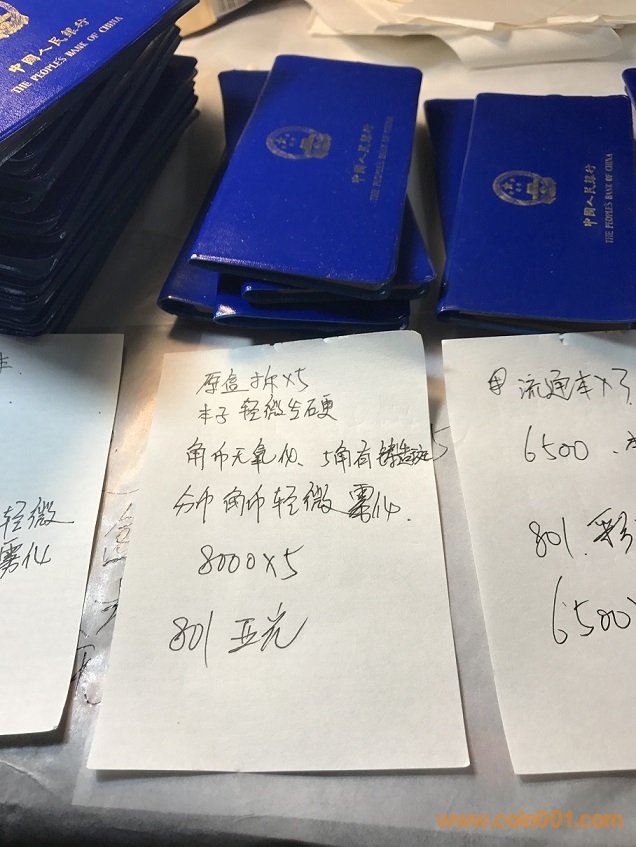 中国人民银行
THE PEOPLE'S BANK OF CHINA
中国人民银行
THE PEOPLE'S BANK OF CHINA
中国人民银行
THE PEOPLE'S BANK OF CHINA
轻微
雾化
原盒拆×5
本子轻微发硬
角币无氧化、5角有铸造斑
分币角币轻微雾化.
8000×5
801亚光
流通本×3
6500
801.彩
6500
www.coin001.com